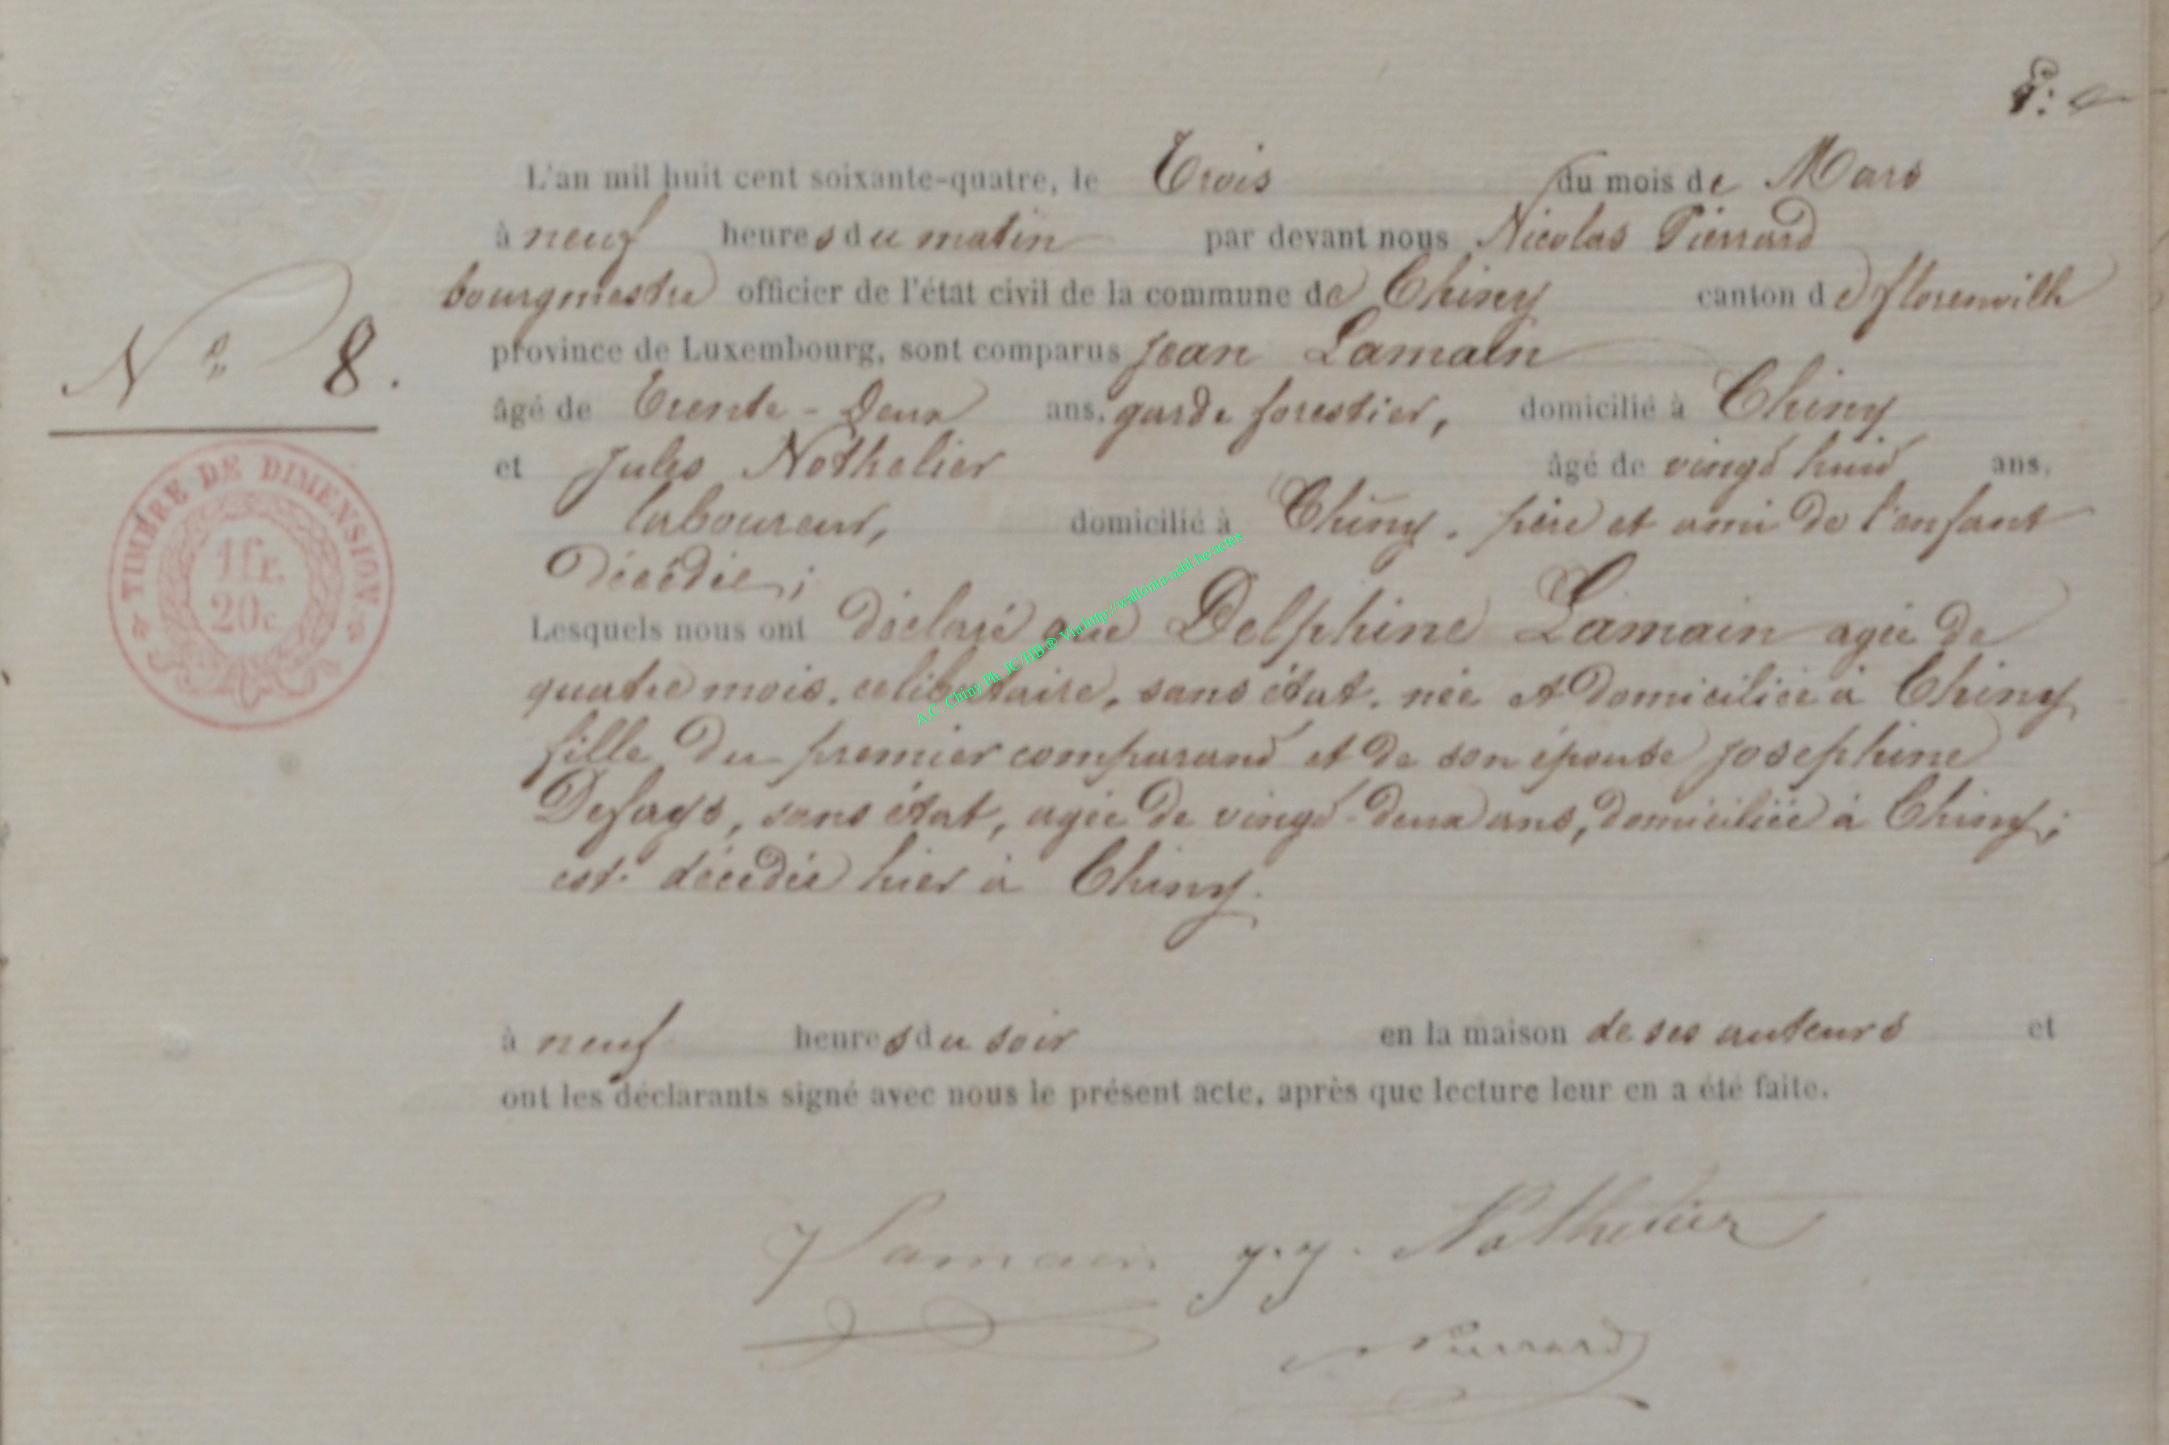 L'an mil huit cent soixante-quatre, le Trois du mois de Mars
à neuf heures du matin par devant nous Nicolas Pierrard
bourgmestre officier de l'état civil de la commune de Chiny canton de florenville
N° 8.
province de Luxembourg, sont comparus Jean Lamain
âgé de Trente-Deux ans, garde forestier, domicilié à Chiny
et Jules Nothelier âgé de vingt huit ans,
laboureur, domicilié à Chiny, père et ami de l'enfant
Décédée;
TIMBRE DE DIMENSION
1fr.
20c
Lesquels nous ont déclaré que Delphine Lamain agée de
quatre mois, celibataire, sans état, née et domiciliée à Chiny
fille du premier comparant et de son épouse Josephine
Defays, sans état, agée de vingt-deux ans, domiciliée à Chiny;
est décédée hier à Chiny.
A.C. Chiny Ph. JC HB® Via http://wallonia-asbl.be/actes
à neuf heures du soir en la maison de ses auteurs et
ont les déclarants signé avec nous le présent acte, après que lecture leur en a été faite.
J Lamain J.J. Nothelier
N Pierrard